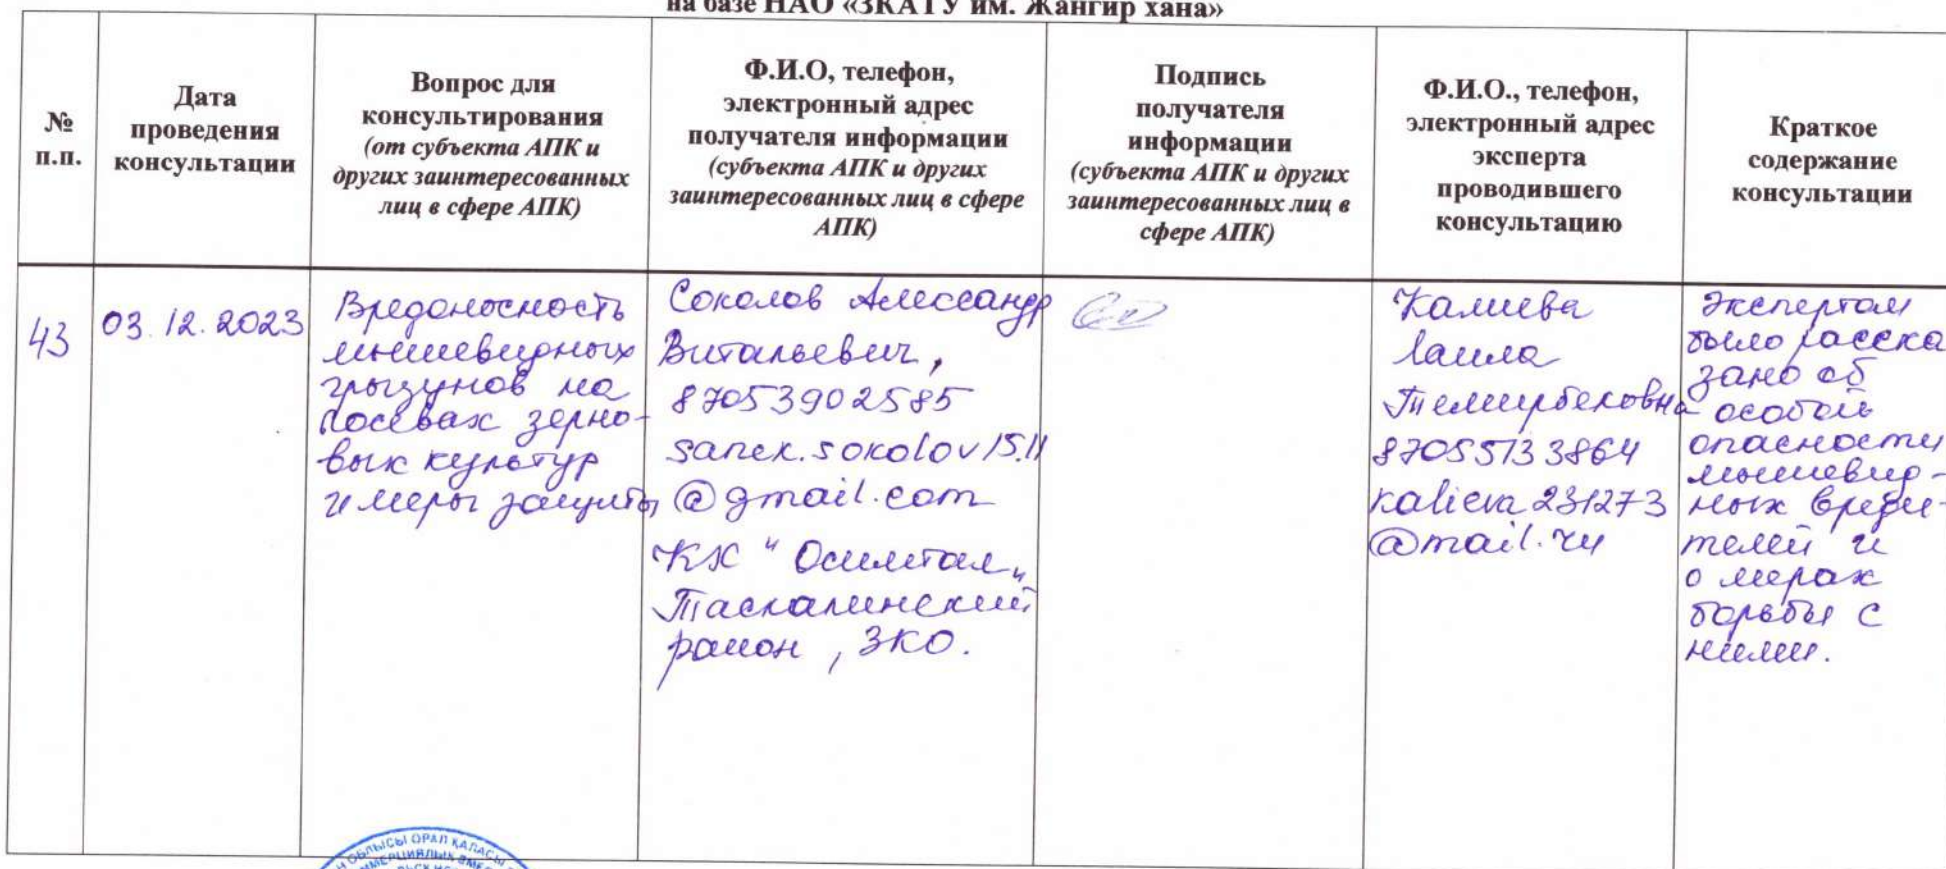 на базе НАО «ЗКАТУ им. Жангир хана»
№
п.п.
Дата
проведения
консультации
Вопрос для
консультирования
(от субъекта АПК и
других заинтересованных
лиц в сфере АПК)
Ф.И.О, телефон,
электронный адрес
получателя информации
(субъекта АПК и других
заинтересованных лиц в сфере
АПК)
Подпись
получателя
информации
(субъекта АПК и других
заинтересованных лиц в
сфере АПК)
Ф.И.О., телефон,
электронный адрес
эксперта
проводившего
консультацию
Краткое
содержание
консультации
43
03.12.2023
Вредоносность
мышевидных
грызунов на
посевах зерно-
вых культур
и меры защиты
Соколов Александр
Витальевич,
87053902585
sanek.sokolov15.11
@gmail.com
КХ "Осиптал"
Таскалинский
район, ЗКО.
Калиева
Лаила
Темирбековна
87055133864
kalieva231273
@mail.ru
Экспертом
было расска
зано об
особой
опасности
мышевид-
ных вреди-
телей и
о мерах
борьбы с
ними.
ОБЛЫСЫ ОРАЛ ҚАЛАСЫ